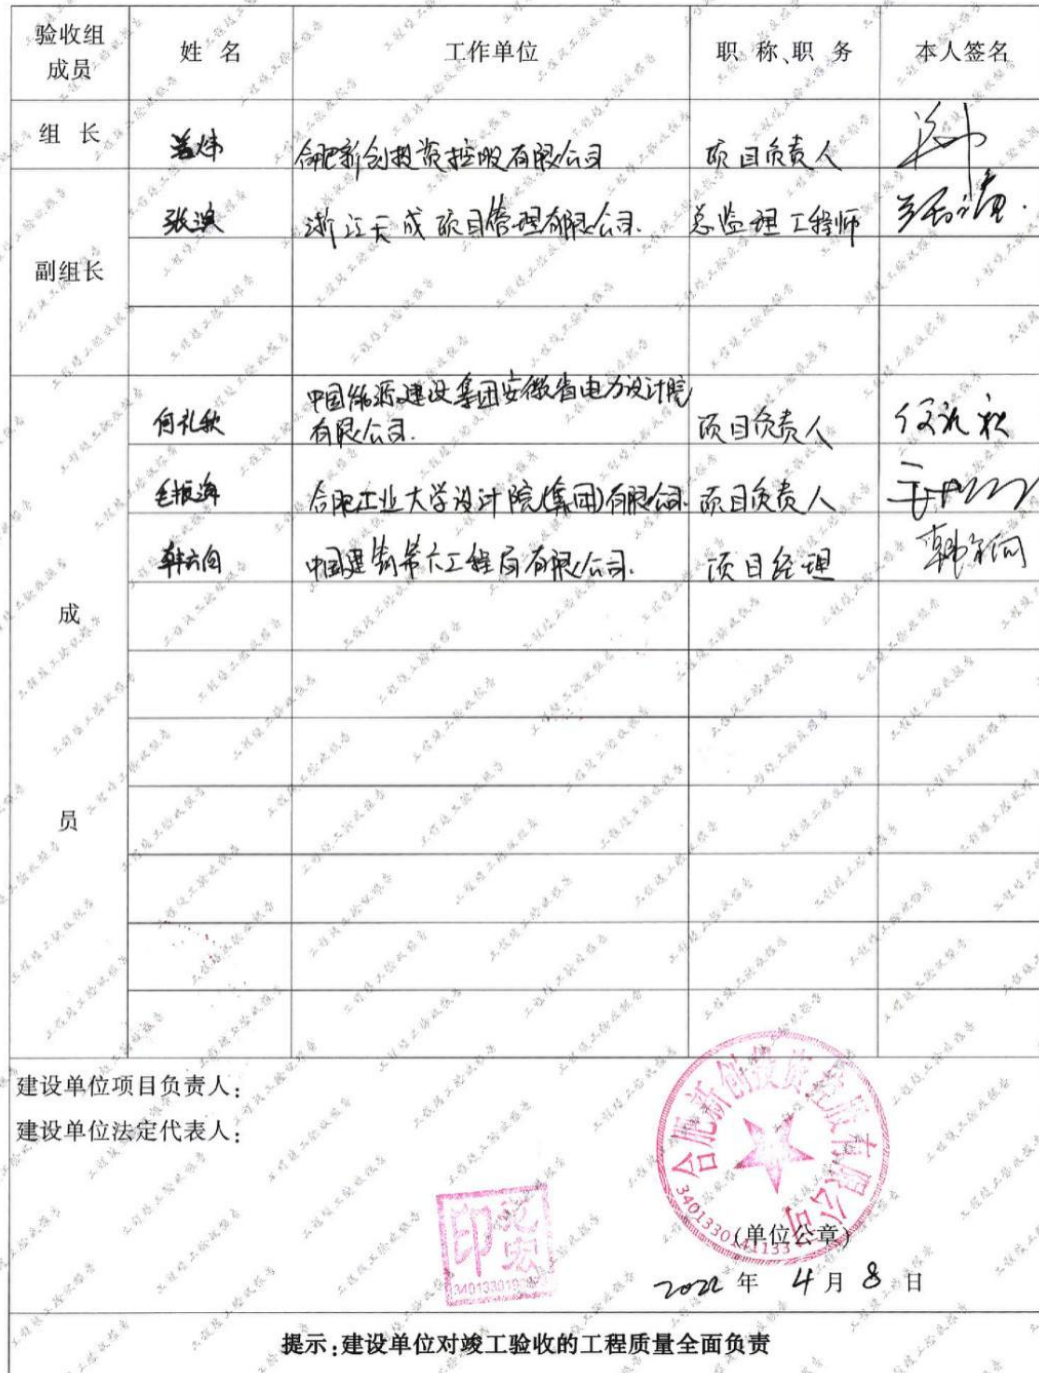 验收组成员 姓 名 工作单位 职 称、职 务 本人签名
组 长 合肥新创投资控股有限公司 项目负责人
张滨 浙江天成项目管理有限公司. 总监理工程师
副组长
中国能源建设集团安徽省电力设计院
何礼秋 有限公司. 项目负责人 何礼秋
毛振海 合肥工业大学设计院(集团)有限公司 项目负责人
韩向 中国建筑第六工程局有限公司. 项目经理
成
员
建设单位项目负责人:
建设单位法定代表人:
合肥新创投资控股有限公司
印
(单位公章)
2022 年 4 月 8 日
提示:建设单位对竣工验收的工程质量全面负责
工程竣工验收报告